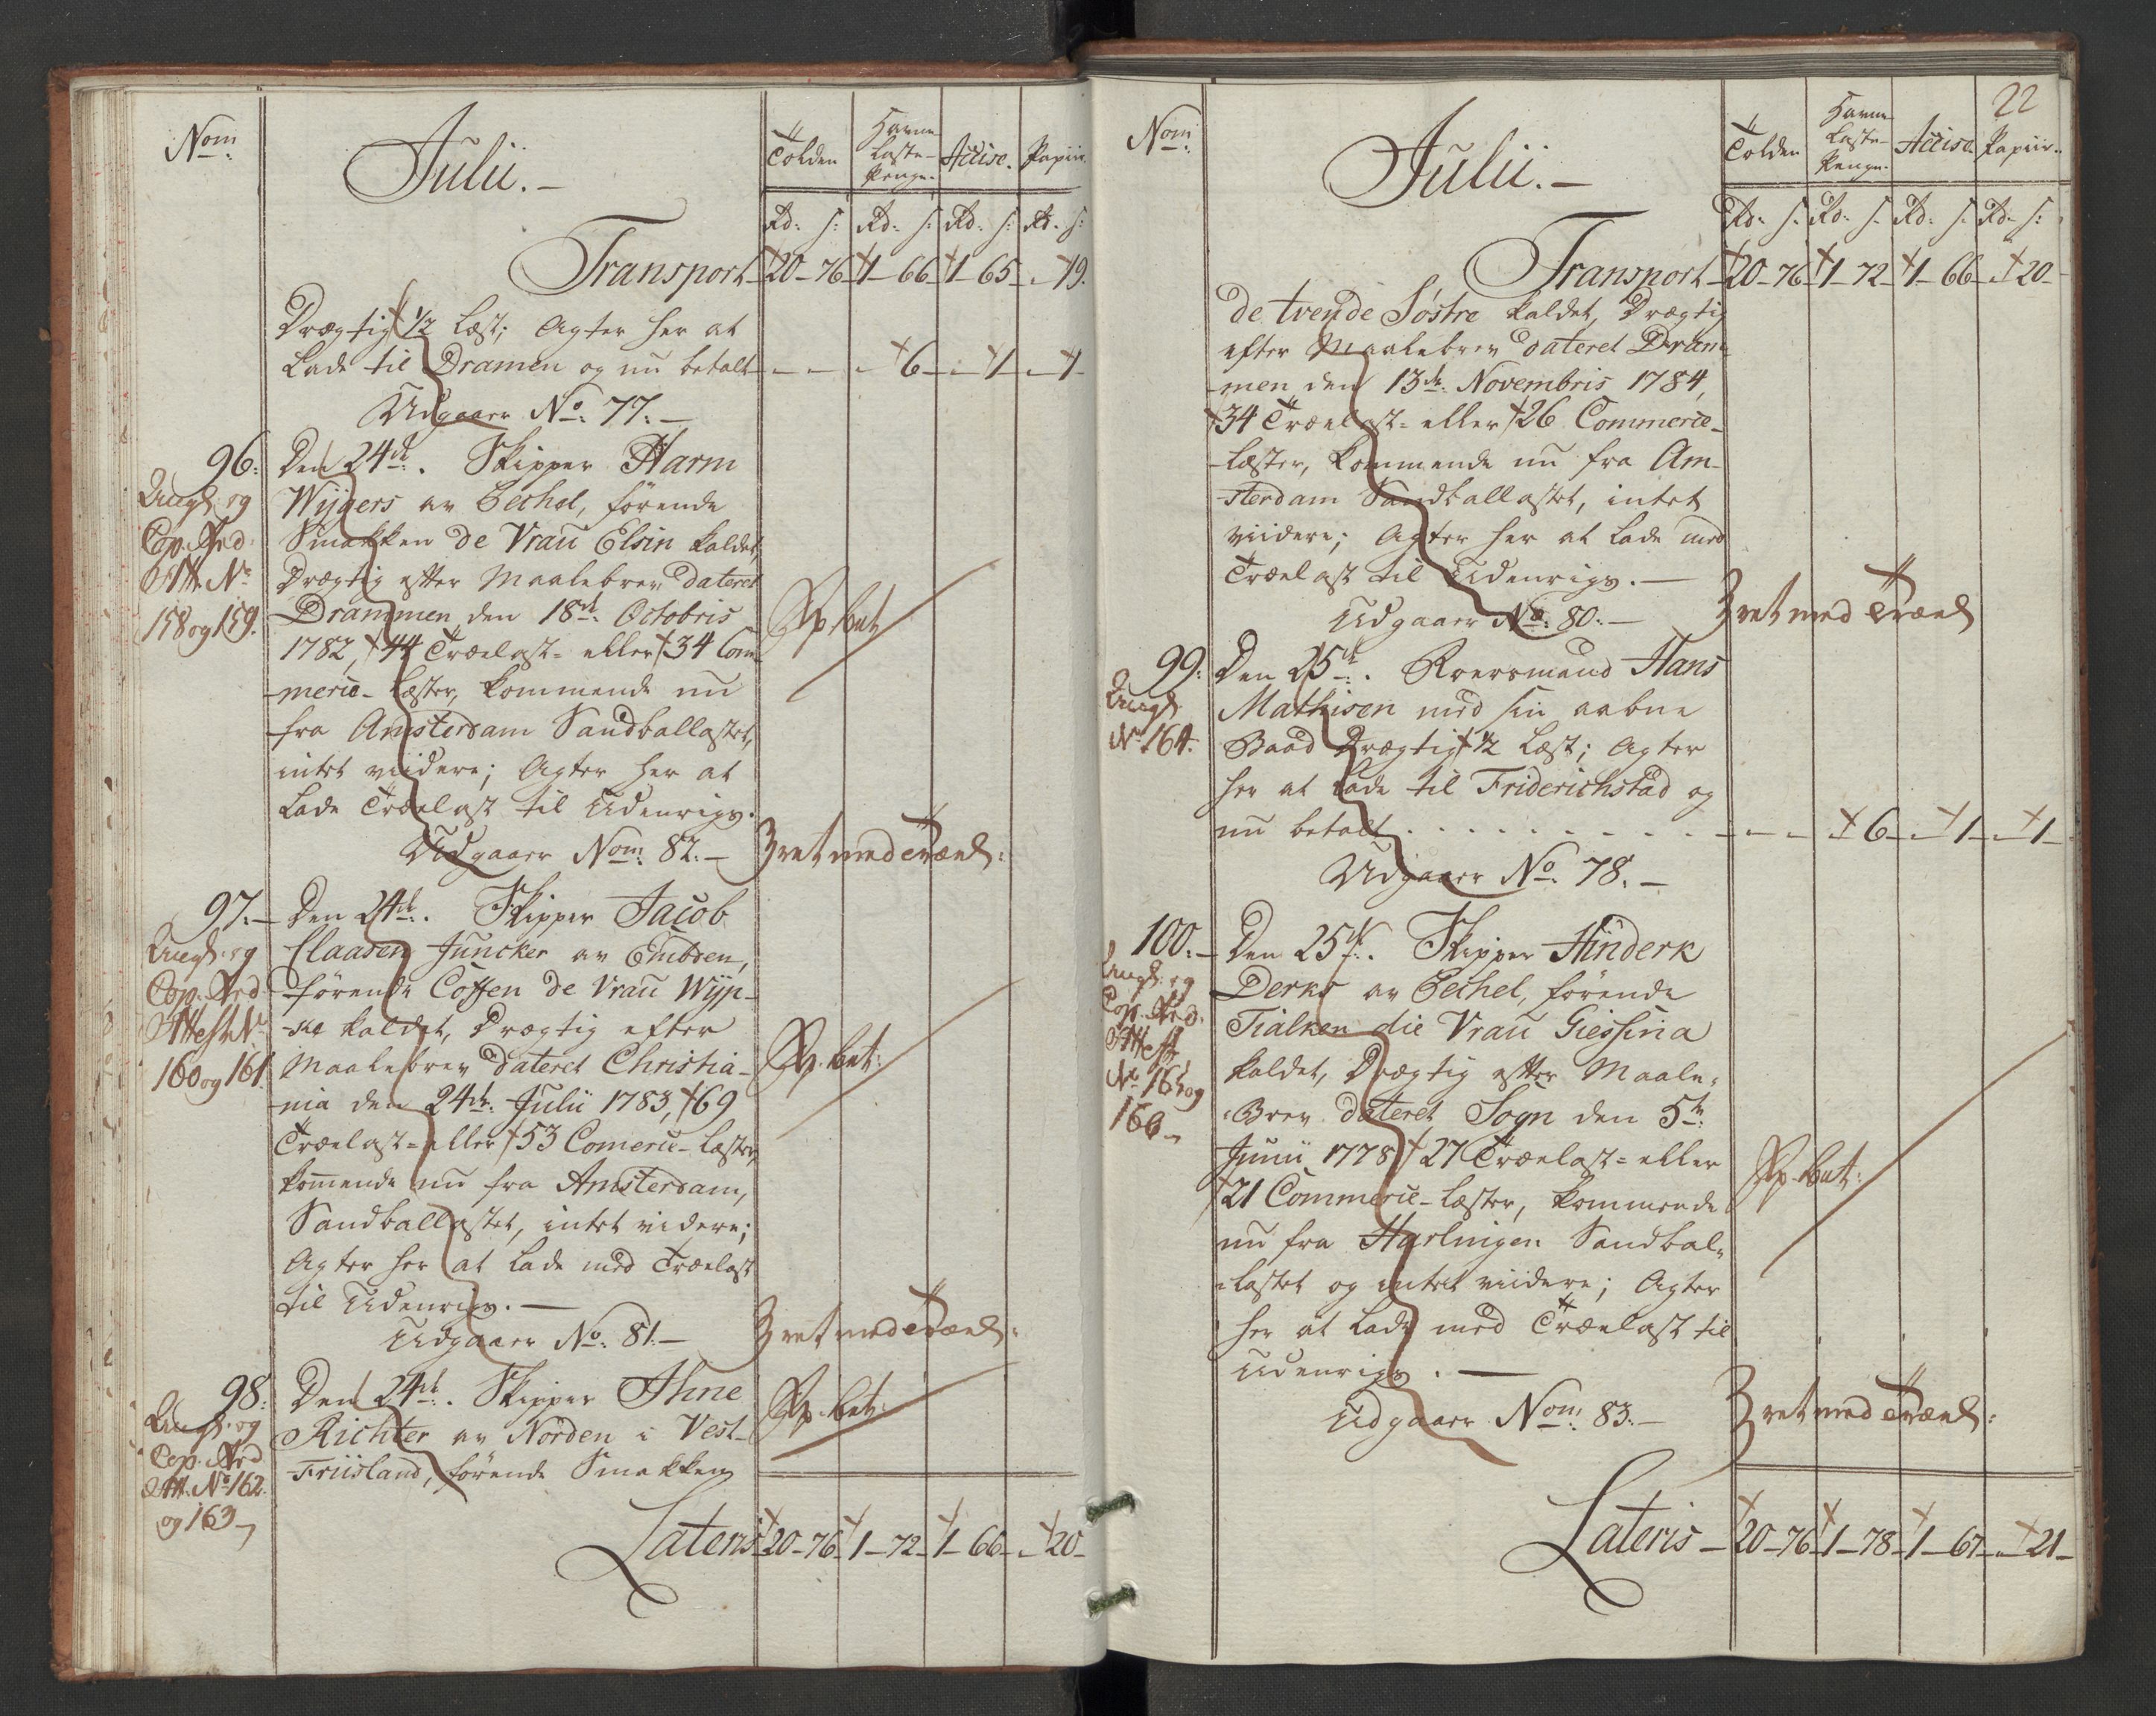 Nom:
Julii.-
Tolden
Havne
Laste-
Penge.
Accise.
Papiir.
Rd. s: Rd. s: Rd. s: Rd. s:
Transport 20-76 1-66 1-65 - 19.
Drægtig 1/2 Læst; Agter her at
Lade til Dramen og nu betalt - - - 6 - 1 - 1
Udgaaer No: 77.-
96: Den 24de. Skipper Harm
Wijgers av Pechel, förende
Smakken de Vrau Elsin kaldet,
Drægtig efter Maalebrev dateret
Drammen den 18de Octobris
1782, 44 Trælast- eller 34 Com-
-merce-Læster, kommende nu
fra Amsterdam Sandballastet,
intet viidere; Agter her at
Lade Trælast til Udenrigs.
Udgaaer Nom: 82.-
og
Cop.
Att. No
158 og 159.
bet
3 ret med Træl:
97.- Den 24de. Skipper Jacob
Claasen Juncker av Embden,
förende Coffen de Vrau Wyp-
-ke kaldet, Drægtig efter
Maalebrev dateret Christia-
-nia den 24de Julii 1783, 69
Trælast- eller 53 Comerce-Læster,
kommende nu fra Amsterdam,
Sandballastet, intet videre;
Agter her at Lade med Trælast
til Udenrigs.-
Udgaaer No: 81.-
og
Cop.
Attest No
160 og 161.
bet:
3 ret med Træl:
98: Den 24de. Skipper Ahne
Richter av Norden i Vest-
-Friisland, förende Smakken
og
Cop.
Att. No 162.
og 163
bet:
Lateris 20-76 1-72 1-66 - 20-
22
Nom:
Julii.-
Tolden
Havne
Laste-
Penge.
Accise.
Papiir.
Rd. s. Rd. s. Rd. s. Rd. s:
Transport 20-76 1-72 1-66 - 20-
de tvende Søstre kaldet, Drægtig
efter Maalebrev dateret Dram-
-men den 13de Novembris 1784,
34 Trælast- eller 26 Commerce-
-Læster, kommende nu fra Am-
-sterdam Sandballastet, intet
viidere; Agter her at Lade med
Trælast til Udenrigs.-
Udgaaer No: 80.- 3 ret med Træl
99: Den 25de. Roersmand Hans
Mathisen med sin aabne
Baad Drægtig 1/2 Læst; Agter
her at Lade til Friderichstad og
nu betalt - - - 6 - 1 - 1-
Udgaaer No: 78.-
No 164.
100.- Den 25de. Skipper Hinderk
Derks av Pechel, förende
Tialken die Vrau Giessina
kaldet, Drægtig efter Maale-
-Brev dateret Sogn den 5te
Junii 1778, 27 Trælast- eller
21 Commerce-Læster, kommende
nu fra Harlingen Sandbal-
-lastet og intet viidere; Agter
her at Lade med Trælast til
Udenrigs.-
Udgaaer Nom: 83.-
og
Cop.
Attest
No 165 og
166
bet:
3 ret med Træl:
Lateris - 20-76 1-78 1-67 - 21-